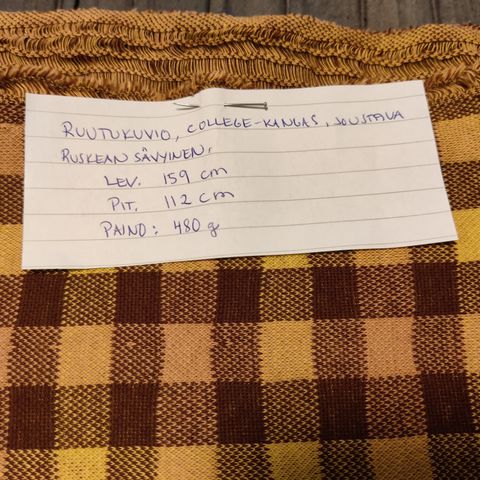 RUUTUKUVIO, COLLEGE-KANGAS, JOUSTAVA
RUSKEAN SÄVYINEN.
LEV. 159 cm
PIT. 112 cm
PAINO: 480 g